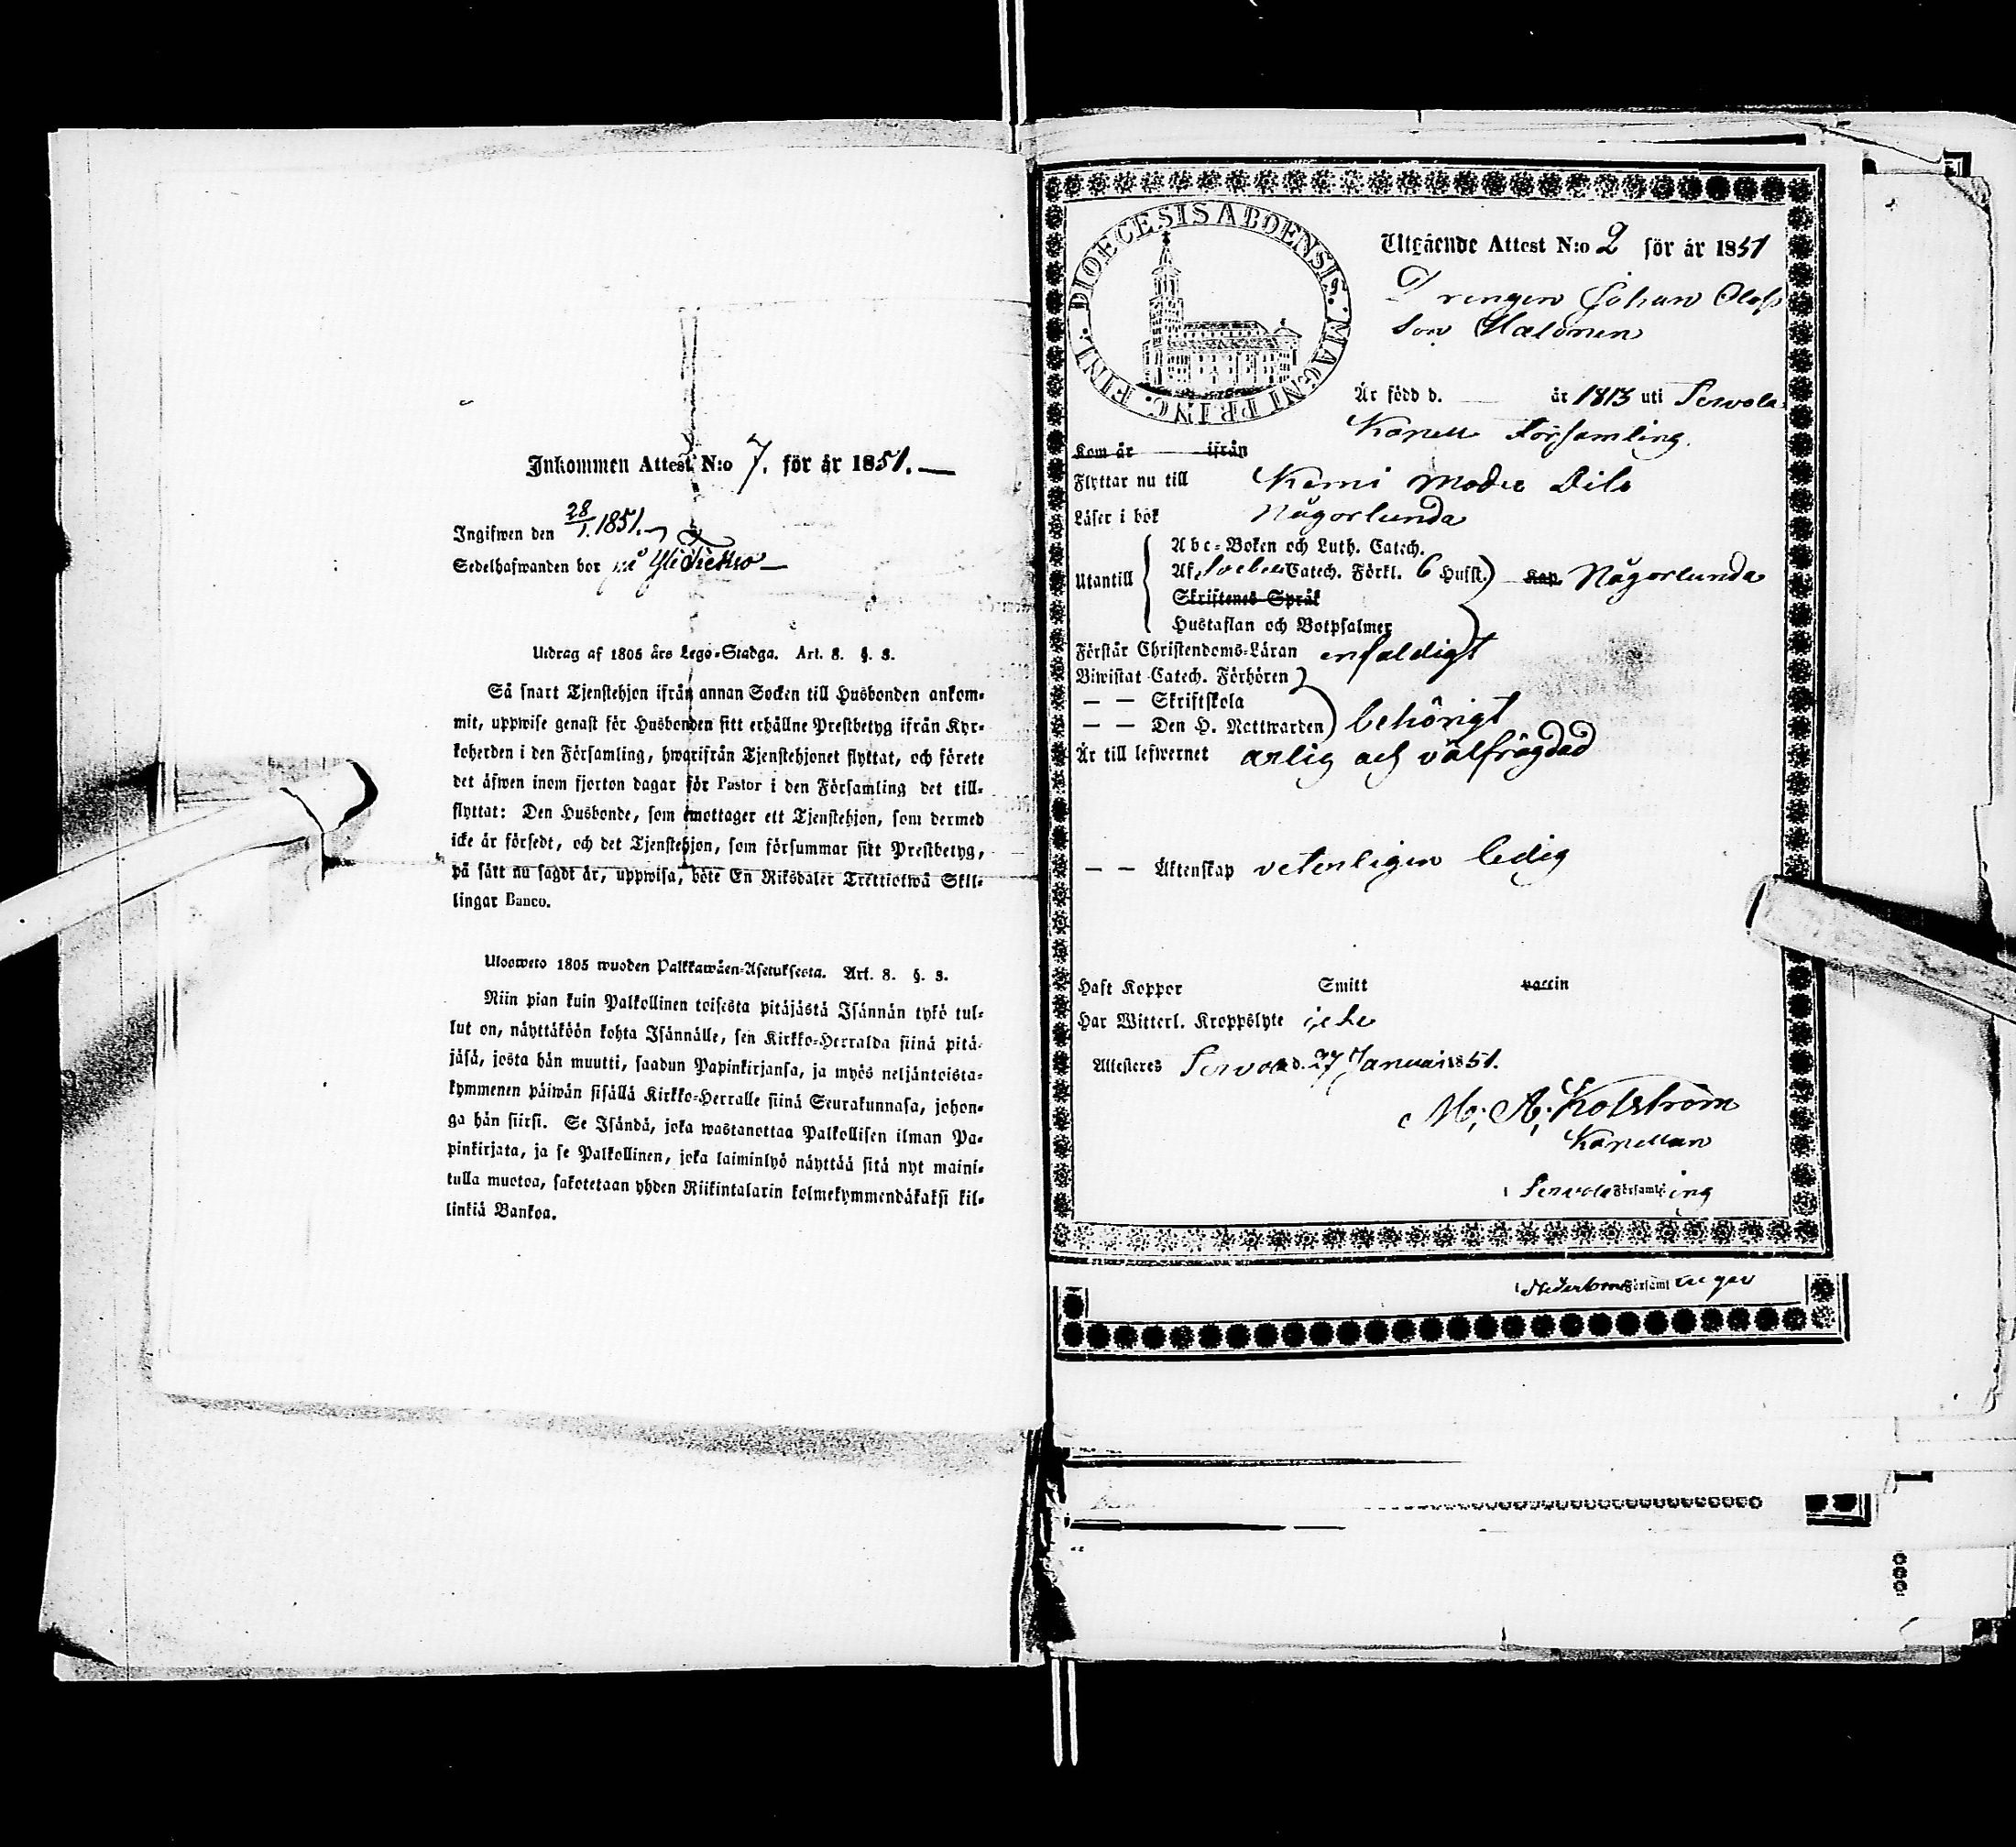 Inkommen Attest N:o 7. för år 1851.
Ingifwen den 28/1. 1851.
Sedelhafwanden bor på
Utdrag af 1805 års Lego-Stadga. Art. 8. §. 3.
Så snart Tjenstehjon ifrån annan Socken till Husbonden ankom-
mit, uppwise genast för Husbonden sitt erhållne Prestbetyg ifrån Kyr-
koherden i den Församling, hwarifrån Tjenstehjonet flyttat, och förete
det äfwen inom fjorton dagar för Pastor i den Församling det till-
flyttat: Den Husbonde, som emottager ett Tjenstehjon, som dermed
icke är försedt, och det Tjenstehjon, som försummar sitt Prestbetyg,
på sätt nu sagdt är, uppwisa, böte En Riksdaler Trettiotwå Skil-
lingar Banco.
Ulosweto 1805 wuoden Palkkawäen-Asetuksesta. Art. 8. §. 3.
Niin pian kuin Palkollinen toisesta pitäjästä Isännän tykö tul-
lut on, näyttäköön kohta Isännälle, sen Kirkko-Herralda siinä pitä-
jäsä, josta hän muutti, saadun Papinkirjansa, ja myös neljäntoista-
kymmenen päiwän sisällä Kirkko-Herralle siinä Seurakunnasa, johon-
ga hän siirsi. Se Isändä, joka wastanottaa Palkollisen ilman Pa-
pinkirjata, ja se Palkollinen, joka laiminlyö näyttää sitä nyt maini-
tulla muotoa, sakotetaan yhden Riikintalarin kolmekymmendäkaksi kil-
linkiä Bankoa.
DIOECESIS ABOENSIS. MAGNI PRINC. FINL.
Utgående Attest N:o 2 för år 1851
Drengen Johan Olofs
son Halonen
Är född d. — år 1813 uti Serwola
Kapell Församling.
Kom år ifrån
Flyttar nu till Kemi Moder
Läser i bok Någorlunda
Abc-Boken och Luth. Catech.
Utantill Af Catech. Förkl. 6 Husst. Kap. Någorlunda
Skriftenes Språk
Hustaflan och Botpsalmer
Förstår Christendoms-Läran enfaldigt
Biwistat Catech. Förhören
— — Skriftskola
— — Den H. Nattwarden behörigt
Är till lefwernet ärlig och välfrägdad
— — Äktenskap veterligen ledig
Haft Koppor Smitt vaccin
Har Witterl. Kroppslyte icke
Attesteres Serwola d. 27 Januari 1851.
M. A. Holström
Kapellan
i Serwola Församling
i Församl